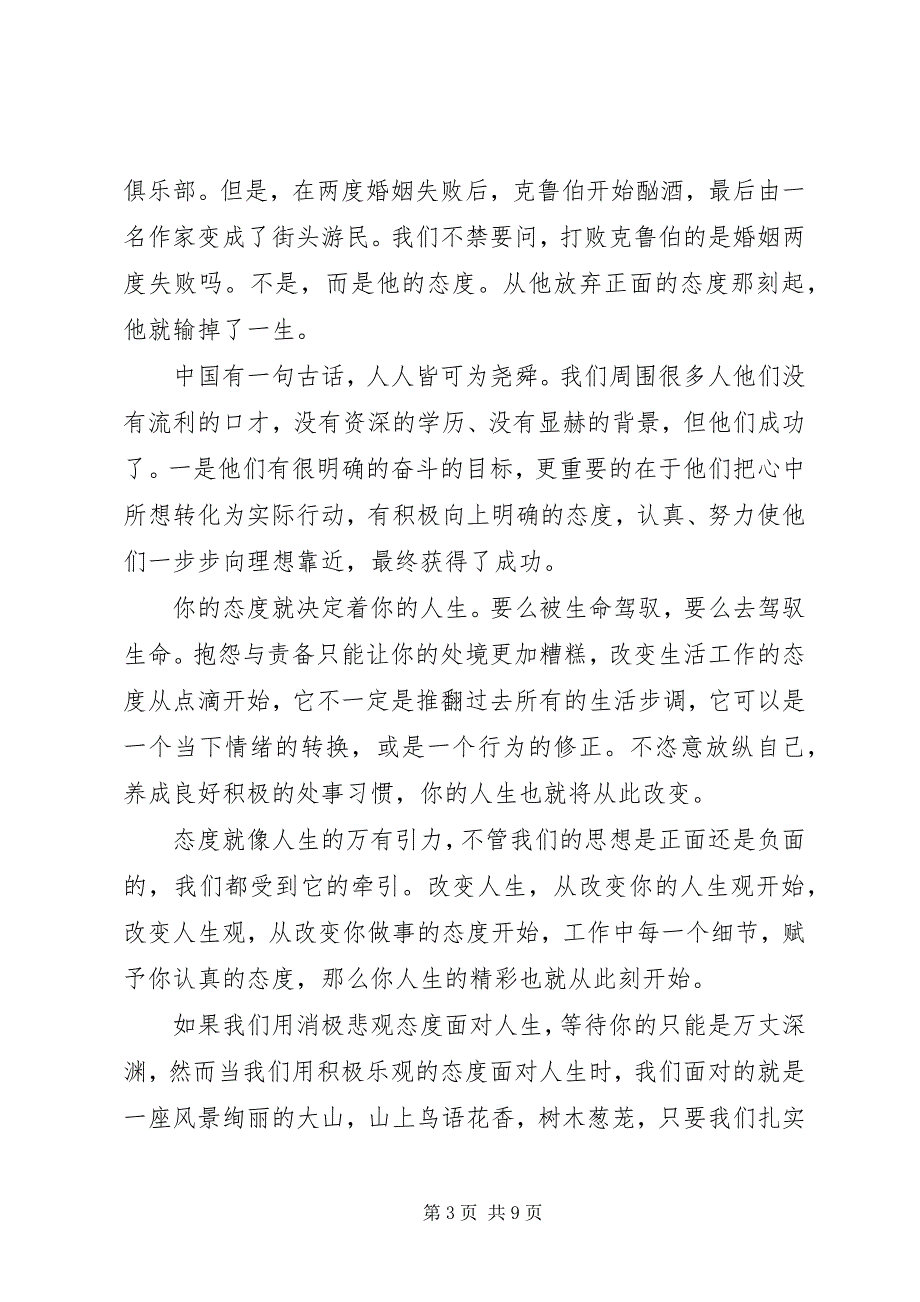 俱乐部。但是，在两度婚姻失败后，克鲁伯开始酗酒，最后由一
名作家变成了街头游民。我们不禁要问，打败克鲁伯的是婚姻两
度失败吗。不是，而是他的态度。从他放弃正面的态度那刻起，
他就输掉了一生。
中国有一句古话，人人皆可为尧舜。我们周围很多人他们没
有流利的口才，没有资深的学历、没有显赫的背景，但他们成功
了。一是他们有很明确的奋斗的目标，更重要的在于他们把心中
所想转化为实际行动，有积极向上明确的态度，认真、努力使他
们一步步向理想靠近，最终获得了成功。
你的态度就决定着你的人生。要么被生命驾驭，要么去驾驭
生命。抱怨与责备只能让你的处境更加糟糕，改变生活工作的态
度从点滴开始，它不一定是推翻过去所有的生活步调，它可以是
一个当下情绪的转换，或是一个行为的修正。不恣意放纵自己，
养成良好积极的处事习惯，你的人生也就将从此改变。
态度就像人生的万有引力，不管我们的思想是正面还是负面
的，我们都受到它的牵引。改变人生，从改变你的人生观开始，
改变人生观，从改变你做事的态度开始，工作中每一个细节，赋
予你认真的态度，那么你人生的精彩也就从此刻开始。
如果我们用消极悲观态度面对人生，等待你的只能是万丈深
渊，然而当我们用积极乐观的态度面对人生时，我们面对的就是
一座风景绚丽的大山，山上鸟语花香，树木葱茏，只要我们扎实
第 3 页 共 9 页